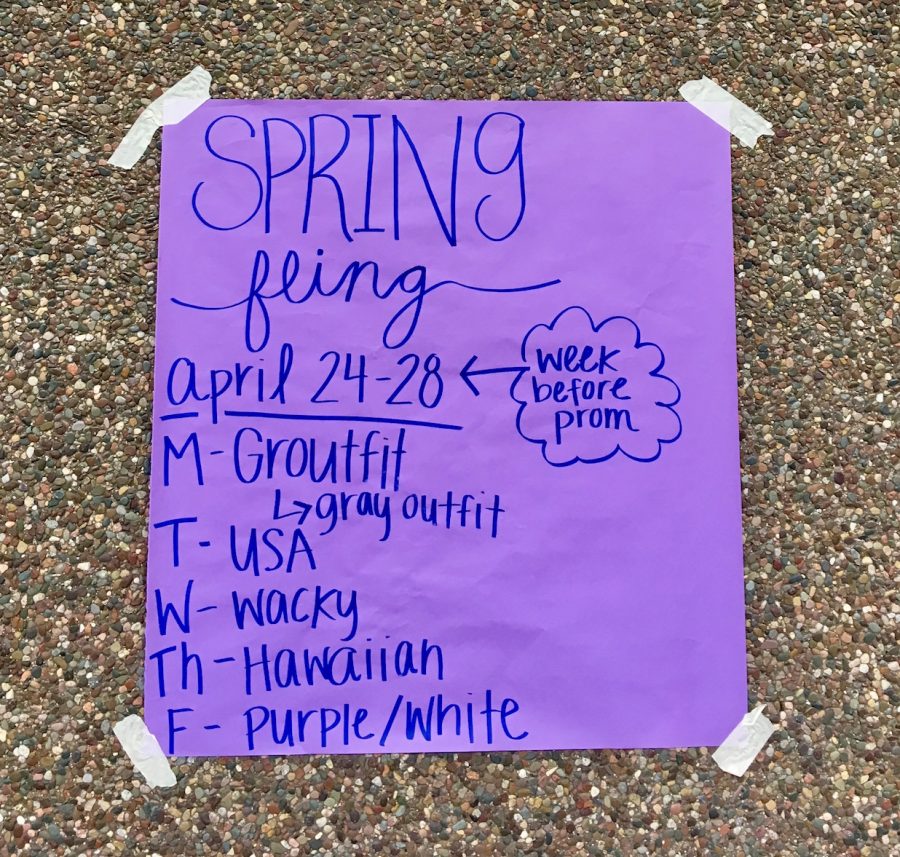 SPRINg
fling
april 24-28 ← week before prom
M-Groutfit
↳gray outfit
T- USA
W- wacky
Th-Hawaiian
F- Purple/White